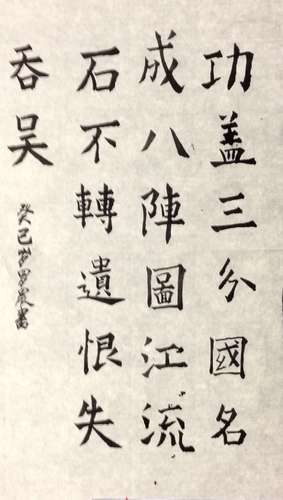 功蓋三分國名
成八陣圖江流
石不轉遺恨失
吞吴
癸巳岁罗辰書